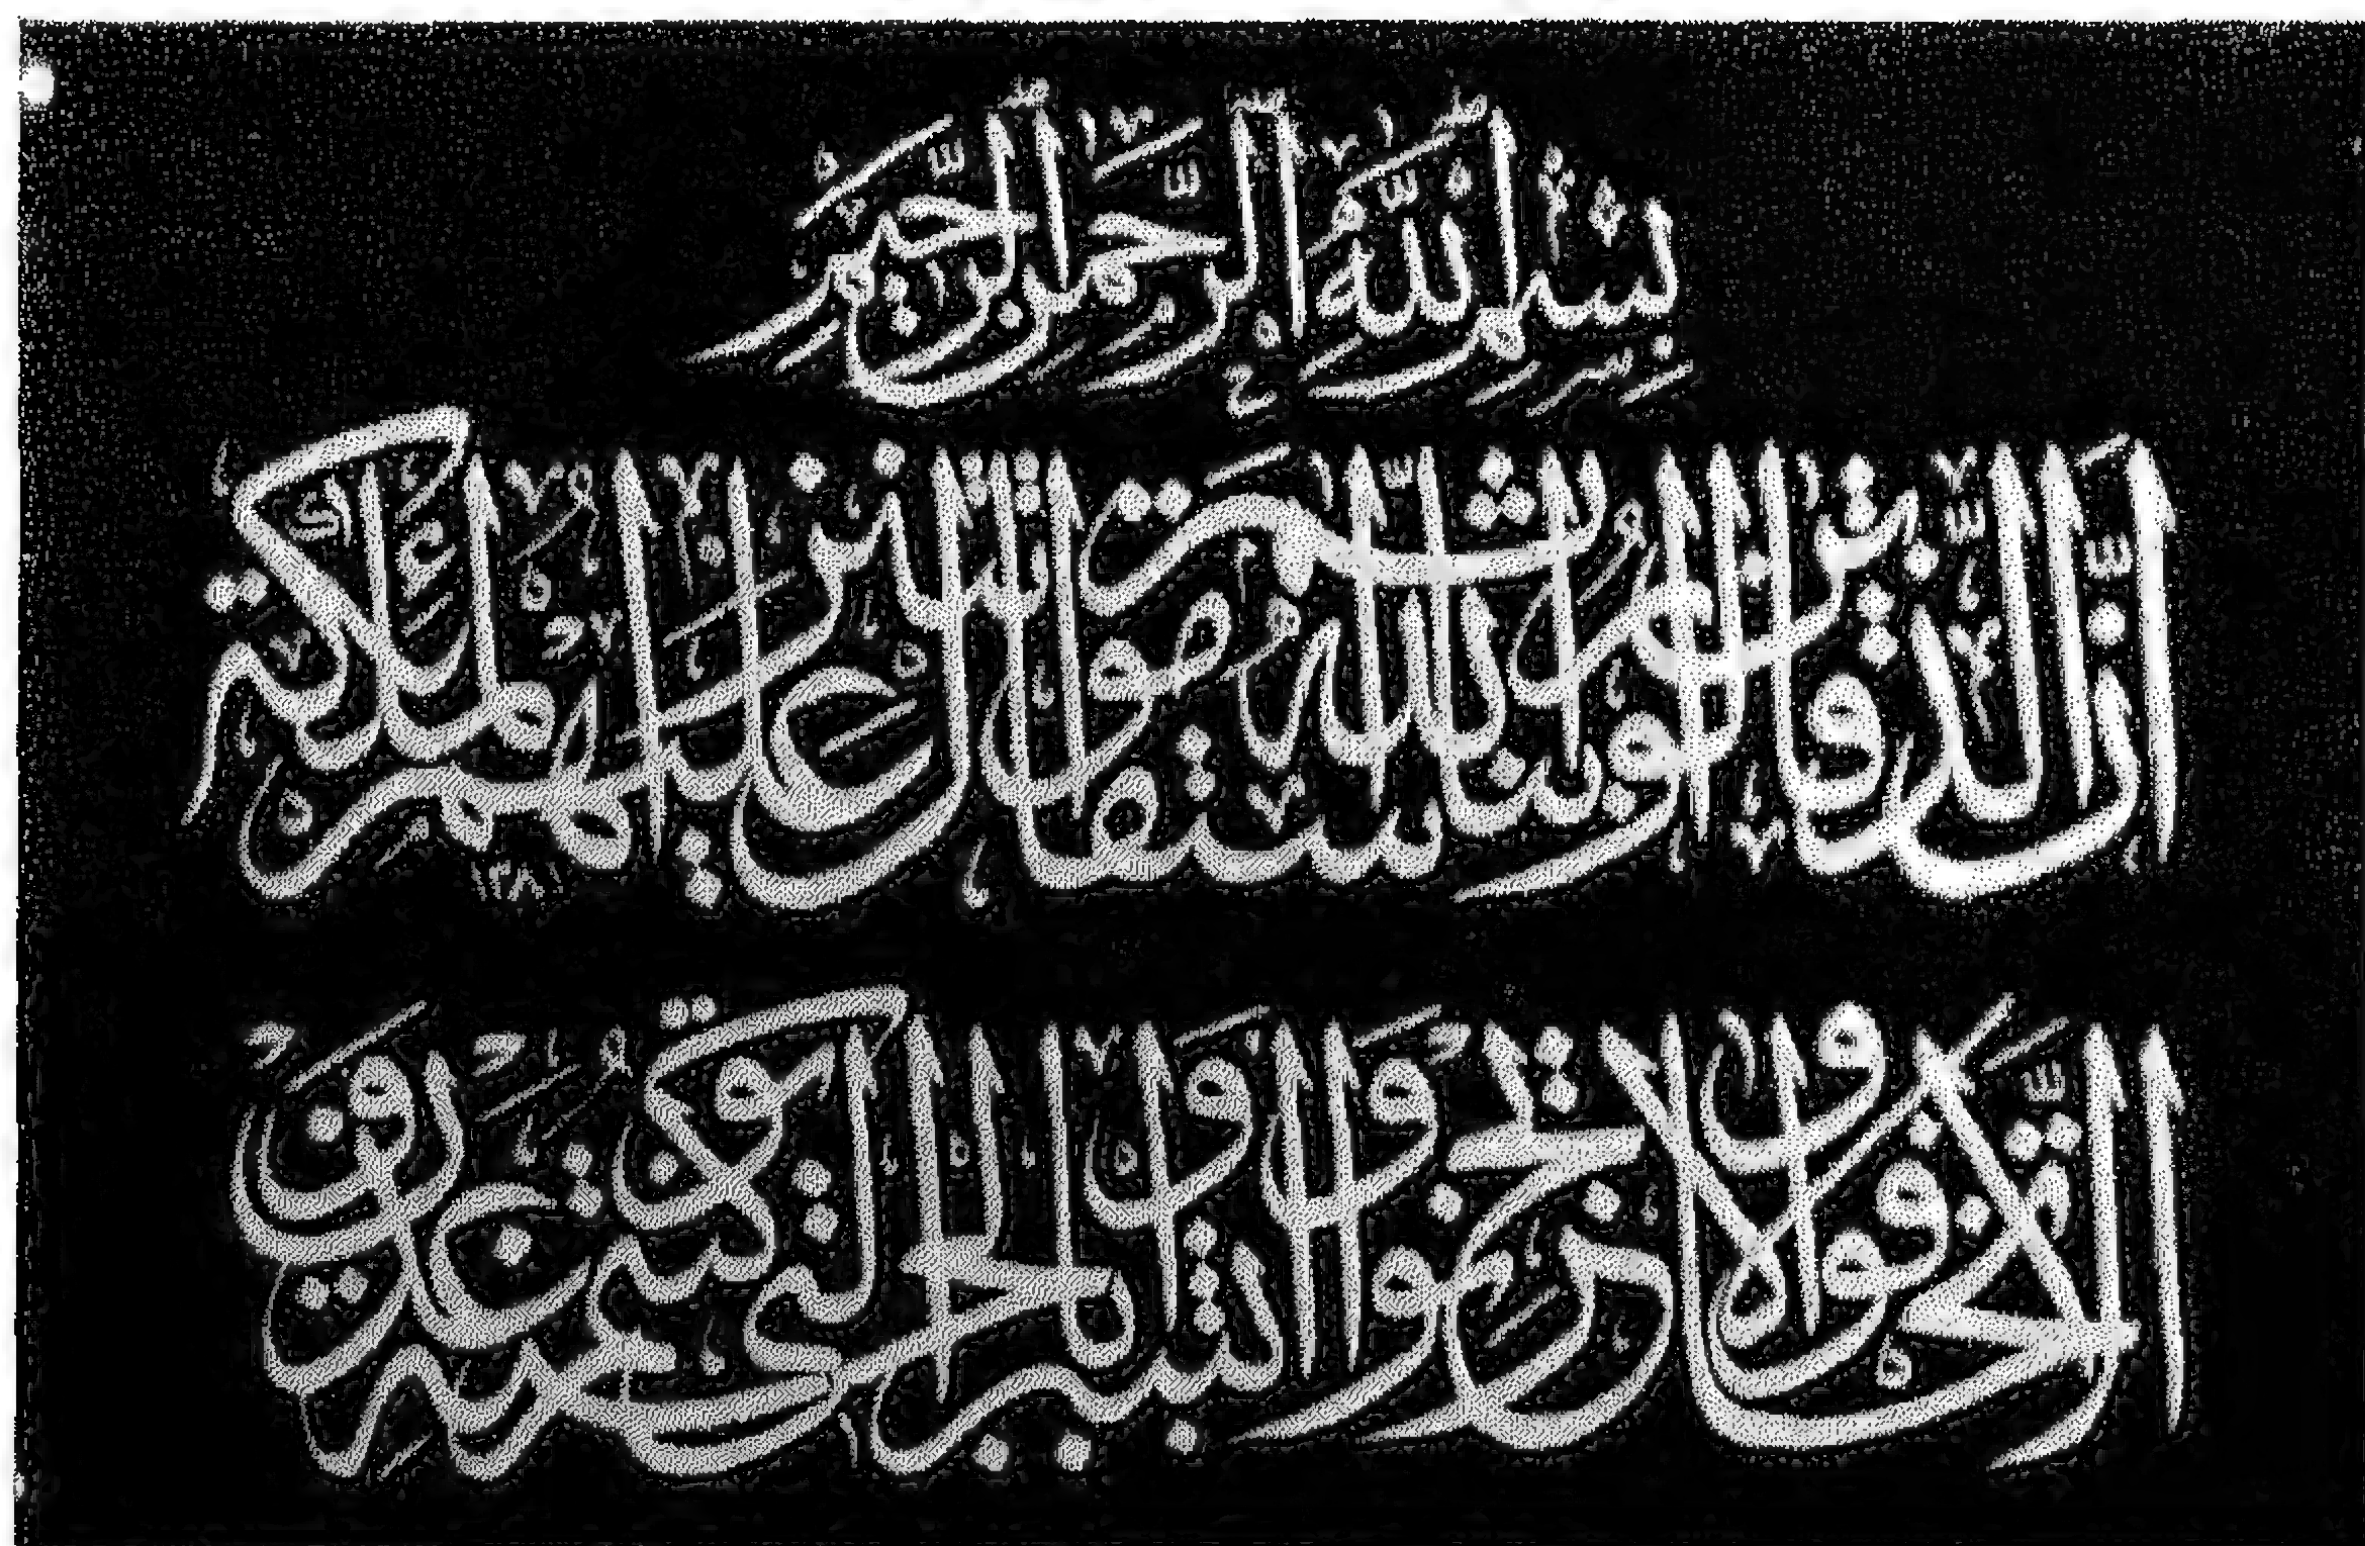 بسم الله الرحمن الرحيم
ان الذين قالوا ربنا الله ثم استقاموا تتنزل عليهم الملئكة
الا تخافوا ولا تحزنوا وابشروا بالجنة التي كنتم توعدون